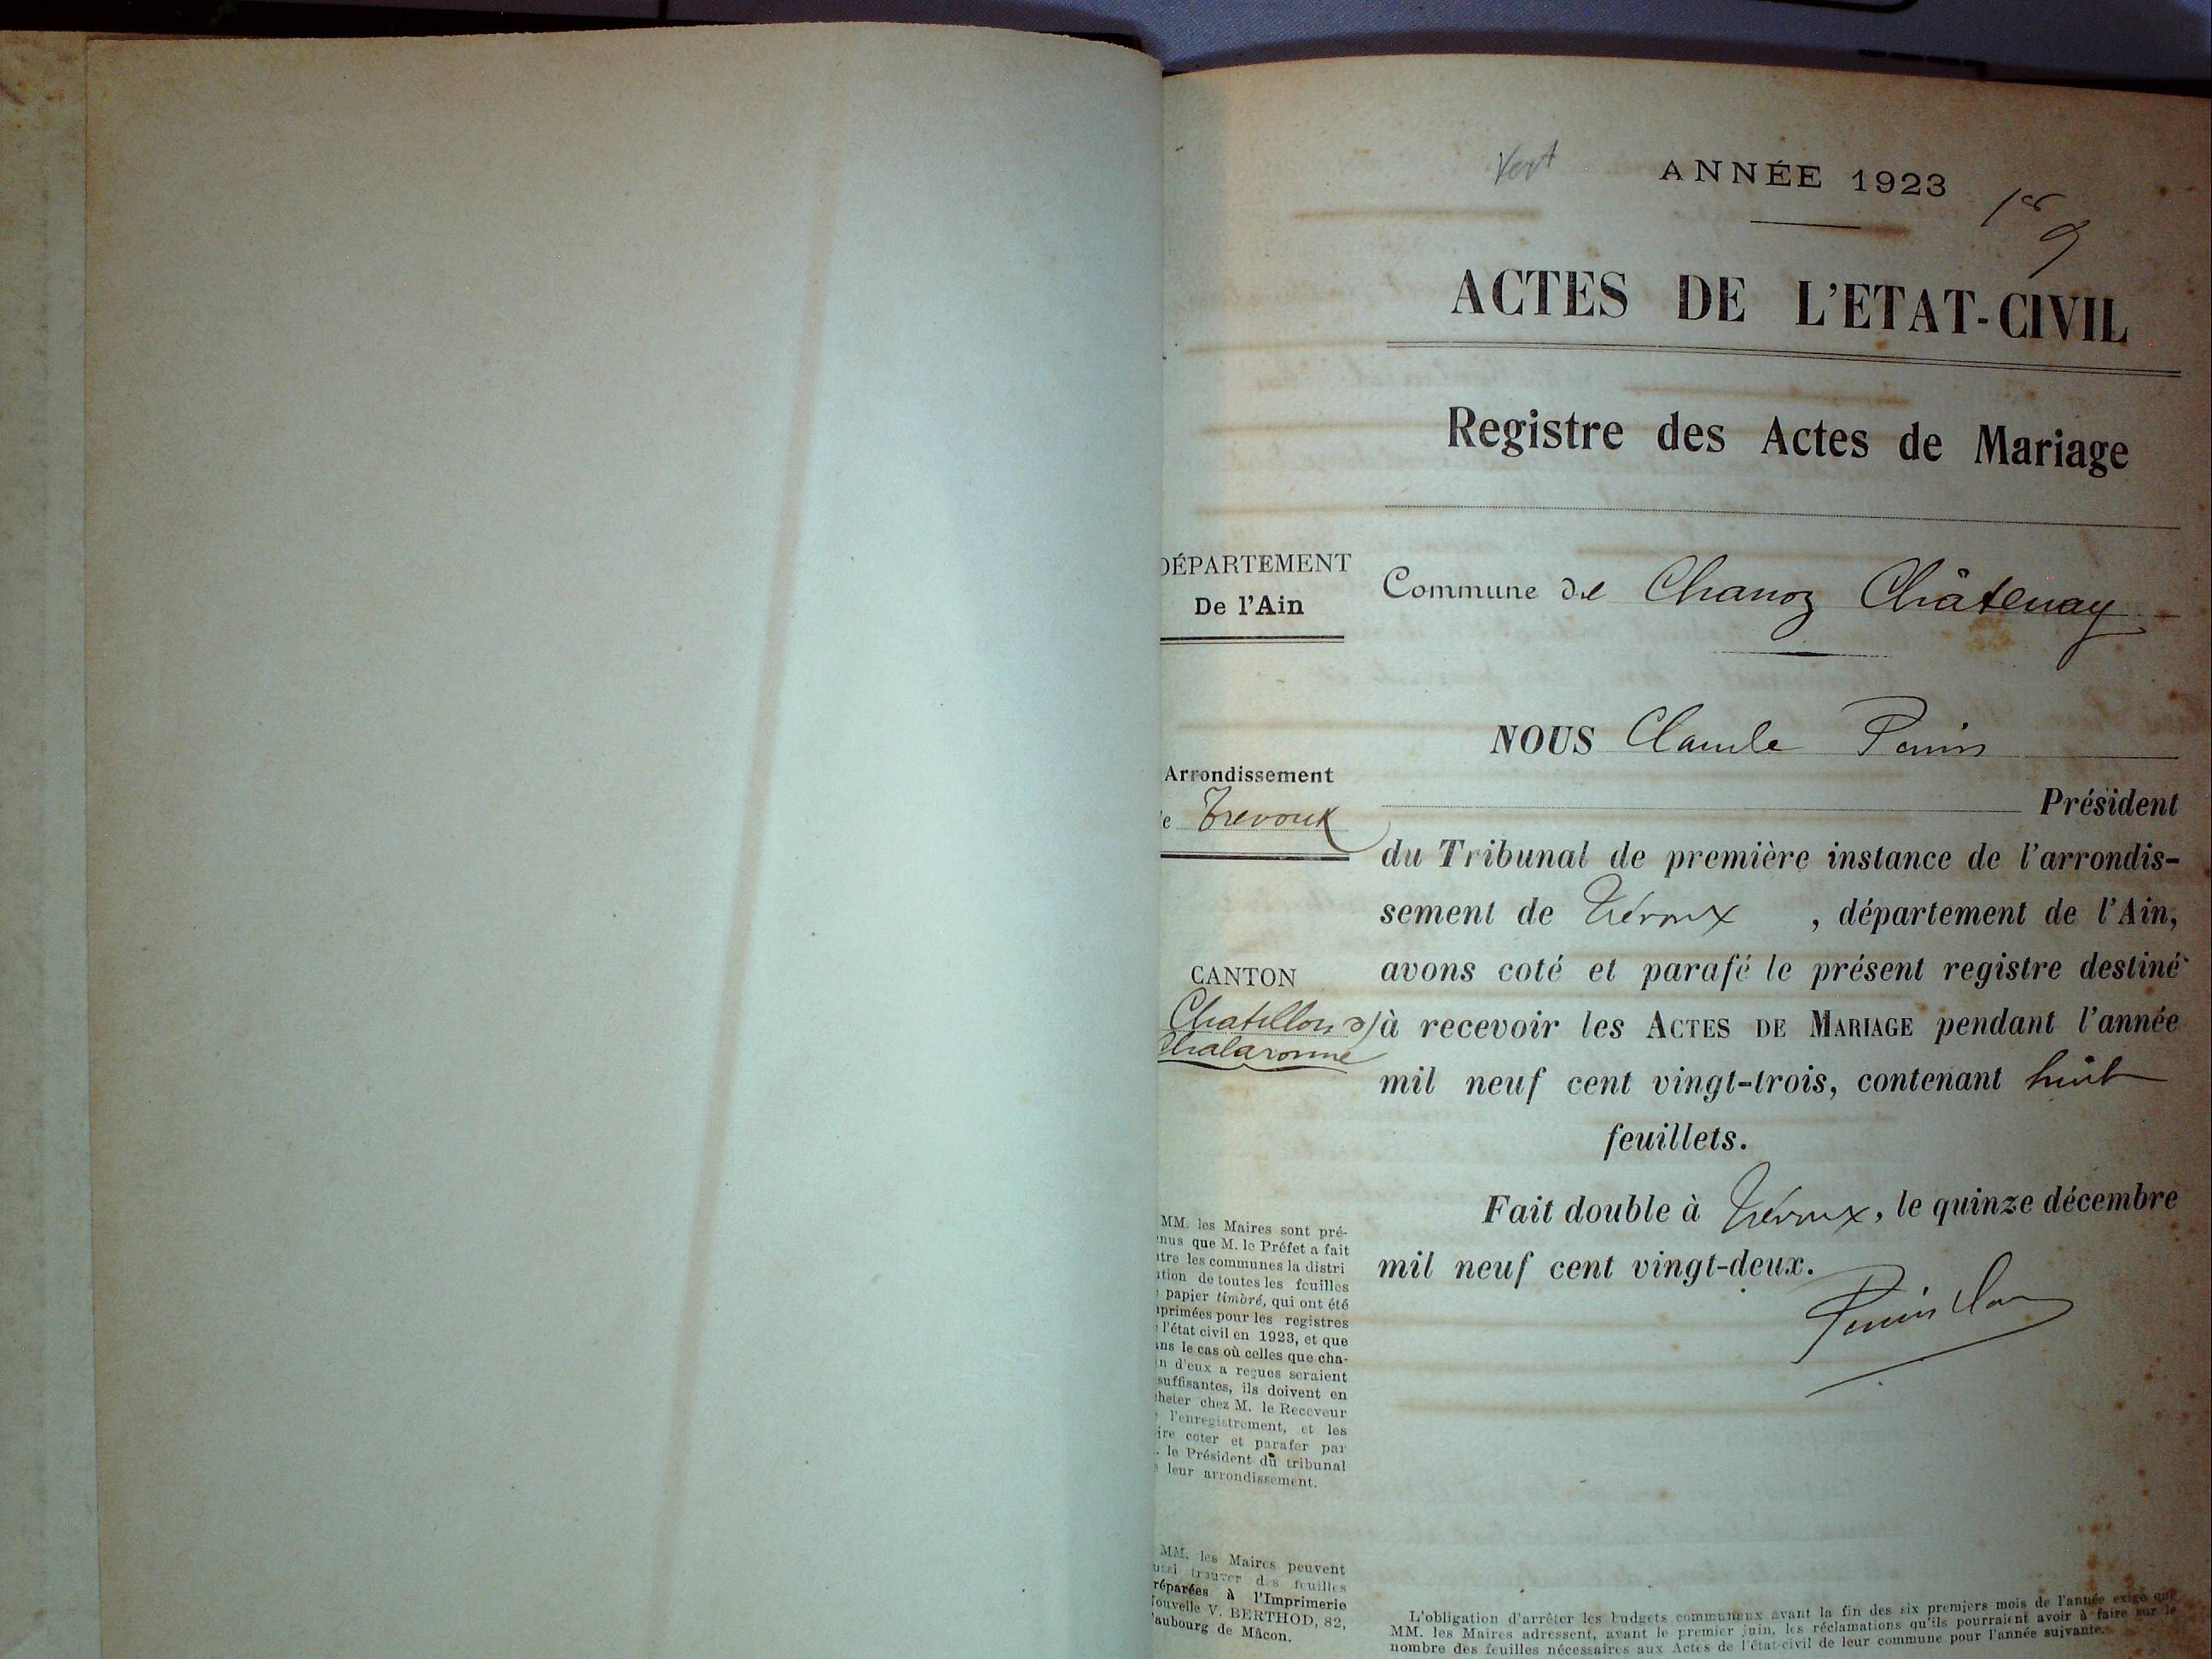 Vert
ANNÉE 1923
1er
ACTES DE L'ETAT-CIVIL
Registre des Actes de Mariage
DÉPARTEMENT
De l'Ain
Commune de Chanoz Châtenay
NOUS Claude
Arrondissement
e Trevoux
Président
du Tribunal de première instance de l'arrondis-
sement de Trévoux, département de l'Ain,
avons coté et parafé le présent registre destiné
CANTON
Chatillon s/
Chalaronne
à recevoir les ACTES DE MARIAGE pendant l'année
mil neuf cent vingt-trois, contenant huit
feuillets.
Fait double à Trévoux, le quinze décembre
mil neuf cent vingt-deux.
MM. les Maires sont pré-
nus que M. le Préfet a fait
tre les communes la distri
tion de toutes les feuilles
papier timbré, qui ont été
primées pour les registres
l'état civil en 1923, et que
ns le cas où celles que cha-
n d'eux a reçues seraient
suffisantes, ils doivent en
heter chez M. le Receveur
l'enregistrement, et les
ire coter et parafer par
. le Président du tribunal
leur arrondissement.
MM. les Maires peuvent
ussi trouver des feuilles
réparées à l'Imprimerie
ouvelle V. BERTHOD, 82,
aubourg de Mâcon.
L'obligation d'arrêter les budgets communaux avant la fin des six premiers mois de l'année exige que
MM. les Maires adressent, avant le premier juin, les réclamations qu'ils pourraient avoir à faire sur le
nombre des feuilles nécessaires aux Actes de l'état-civil de leur commune pour l'année suivante.